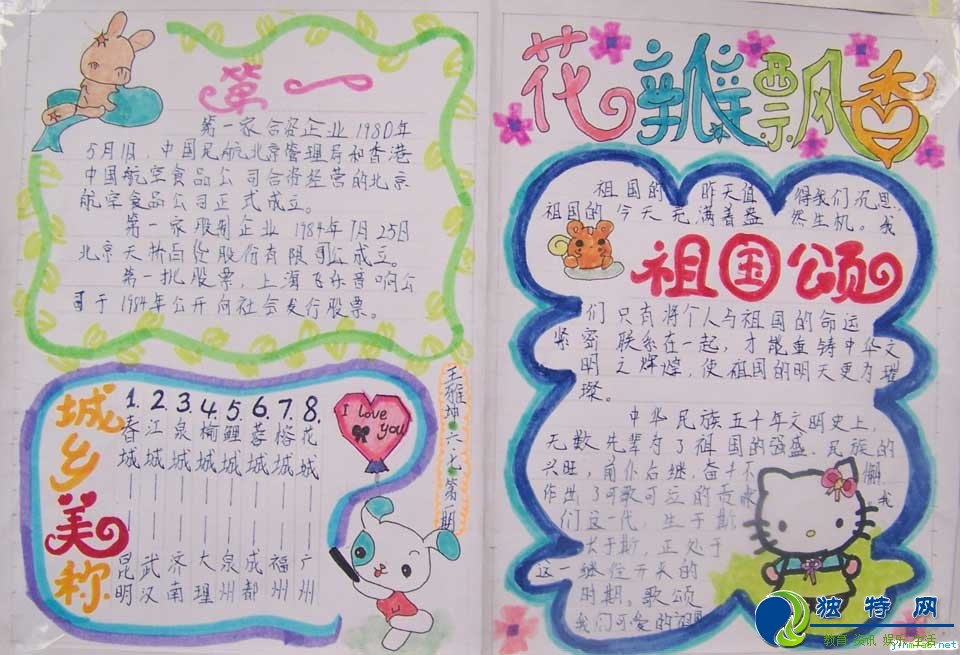 第一
第一家合资企业1980年
5月1日，中国民航北京管理局和香港
中国航空食品公司合资经营的北京
航空食品公司正式成立。
第一家股制企业1984年7月25日
北京天桥百货股份有限司公成立。
第一批股票，上海飞乐音响公
司于1984年公开向社会发行股票。
城乡美称
1.春城——昆明
2.江城——武汉
3.泉城——济南
4.榆城——大理
5.鲤城——泉州
6.蓉城——成都
7.榕城——福州
8.花城——广州
I love
you
王雅坤·六·七·第一期
花瓣飘香
祖国的 昨天值 得我们沉思
祖国的 今天充满着盎 然生机。我
祖国颂
们只有将个人与祖国的命运
紧密联系在一起，才能重铸中华文
明之辉煌，使祖国的明天更为璀
璨。
中华民族五千年文明史上，
无数先辈为了祖国的强盛.民族的
兴旺，前仆后继，奋斗不 懈
作出了可歌可泣的贡献 。我
们这一代，生于斯
长于斯，正处于
这一继往开来的
时期。歌颂
我们可爱的
独特网
教育 资讯 娱乐 生活